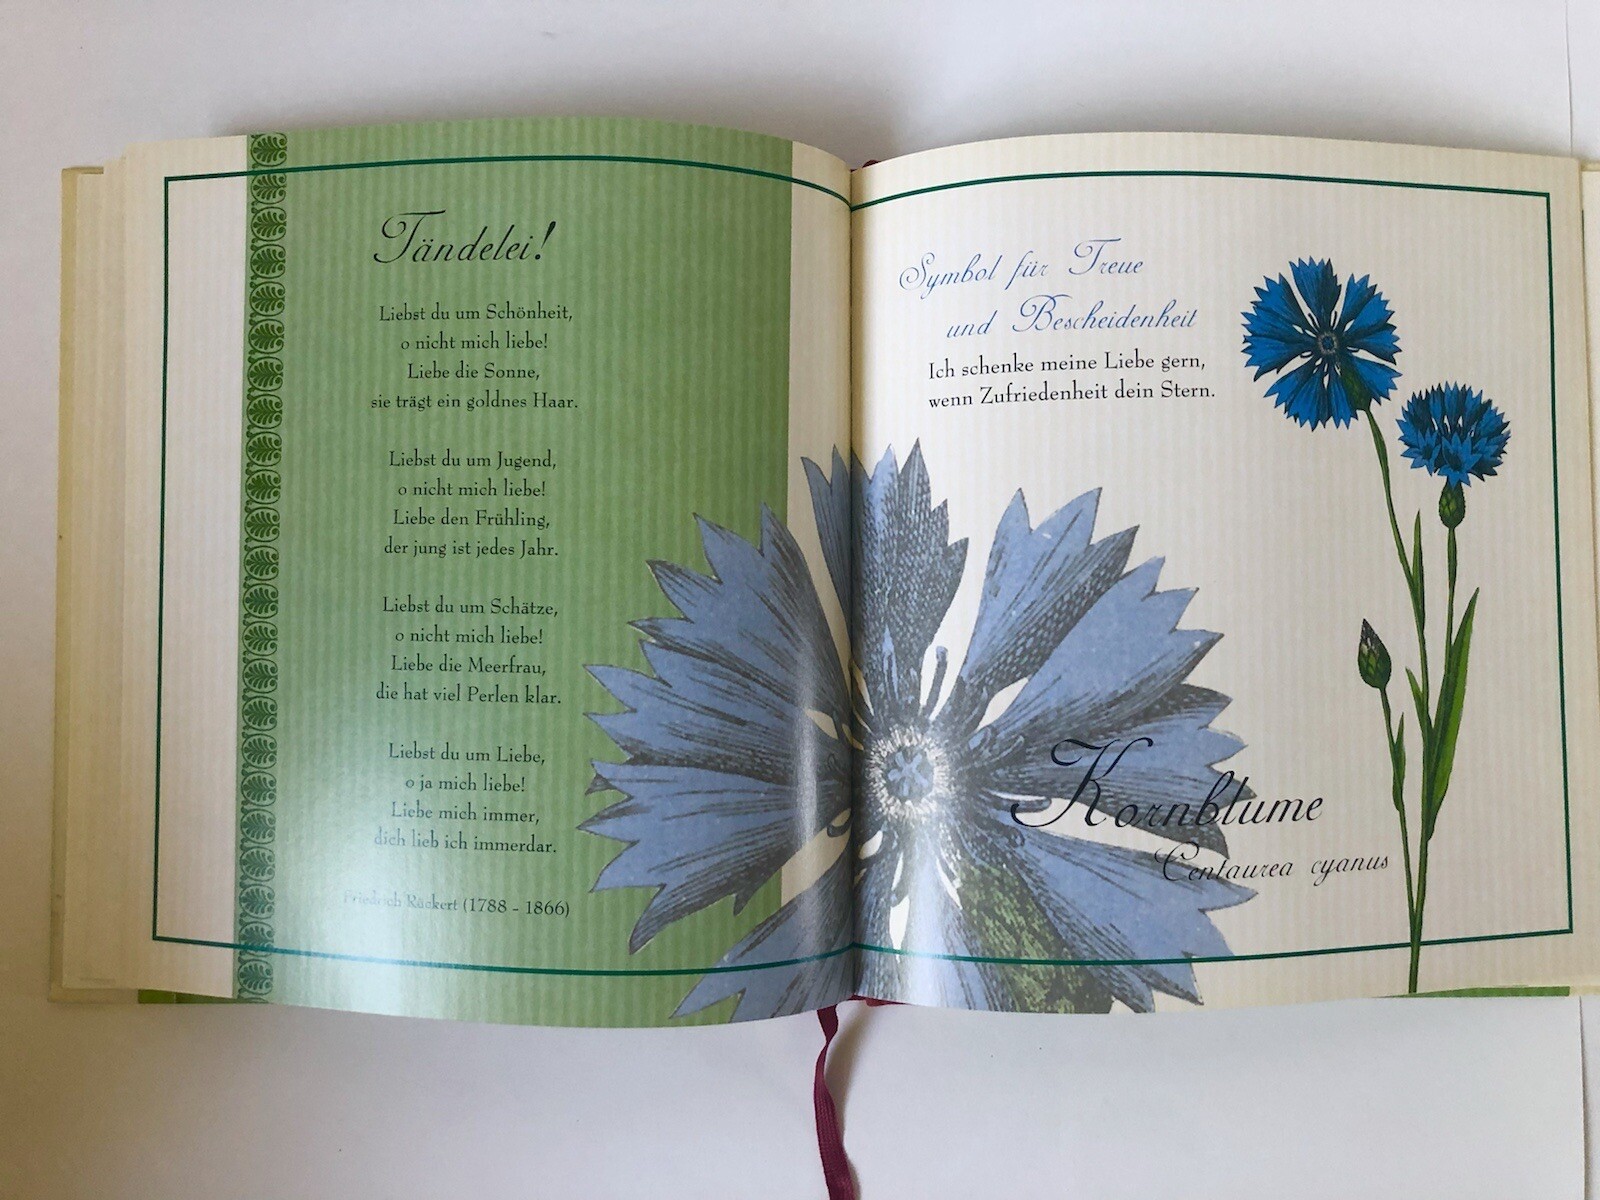 Tändelei!
Liebst du um Schönheit,
o nicht mich liebe!
Liebe die Sonne,
sie trägt ein goldnes Haar.
Liebst du um Jugend,
o nicht mich liebe!
Liebe den Frühling,
der jung ist jedes Jahr.
Liebst du um Schätze,
o nicht mich liebe!
Liebe die Meerfrau,
die hat viel Perlen klar.
Liebst du um Liebe,
o ja mich liebe!
Liebe mich immer,
dich lieb ich immerdar.
Friedrich Rückert (1788 - 1866)
Symbol für Treue
und Bescheidenheit
Ich schenke meine Liebe gern,
wenn Zufriedenheit dein Stern.
Kornblume
Centaurea cyanus